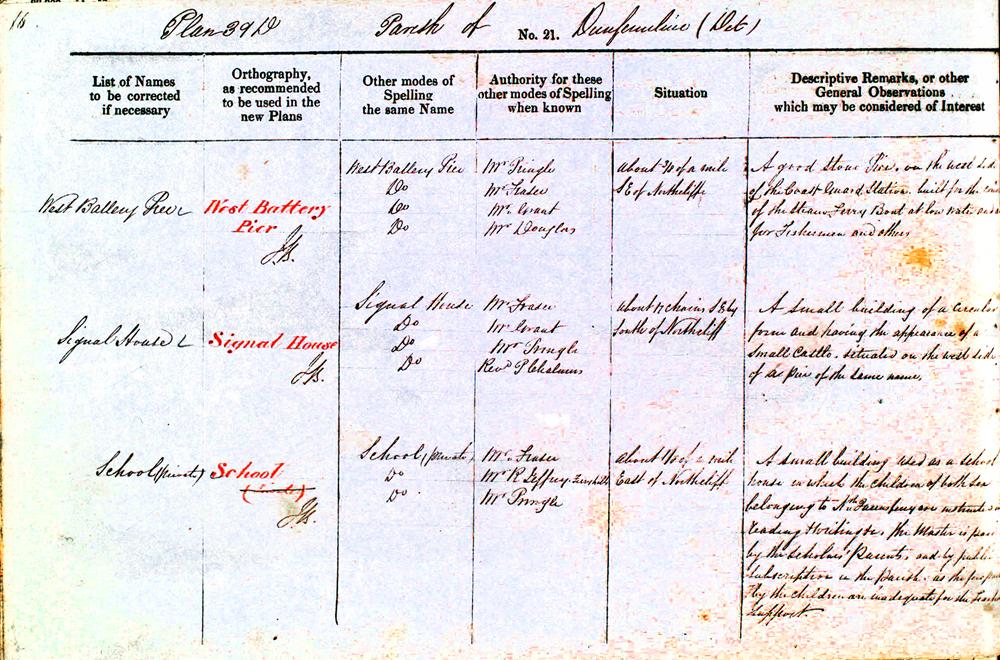 16
Plan 39 D Parish of No. 21. Dunfermline (Det)
List of Names
to be corrected
if necessary
Orthography,
as recommended
to be used in the
new Plans
Other modes of
Spelling
the same Name
Authority for these
other modes of Spelling
when known
Situation
Descriptive Remarks, or other
General Observations
which may be considered of Interest
West Battery Pier
West Battery
Pier
JB.
West Battery Pier
Do
Do
Do
Mr Pringle
Mr Fraser
Mr Grant
Mr Douglas
about 1/4 of a mile
SE of Northcliff
A good Stone Pier, on the west side
of the Coast Guard Station, built for the
of the Steam Ferry Boat at low water and
for Fishermen and others
Signal House
Signal House
JB.
Signal House
Do
Do
Do
Mr Fraser
Mr Grant
Mr Pringle
Revd P Chalmers
about 17 chains SE by
South of Northcliff
A small building of a Circular
form and having the appearance of a
Small Castle. situated on the west side
of a Pier of the same name.
School (private)
School
(private)
JB.
School (private)
Do
Do
Mr Fraser
Mr R Jeffrey Ferryhill
Mr Pringle
about 1/4 of a mile
East of Northcliff
A small building used as a school
house in which the children of both sex
belonging to Nth Queensferry are instructed in
reading & writing &c, the Master is paid
by the scholars' Parents, and by public
subscription in the Parish. as the fees paid
by the children are inadequate for the Teachers
Support.